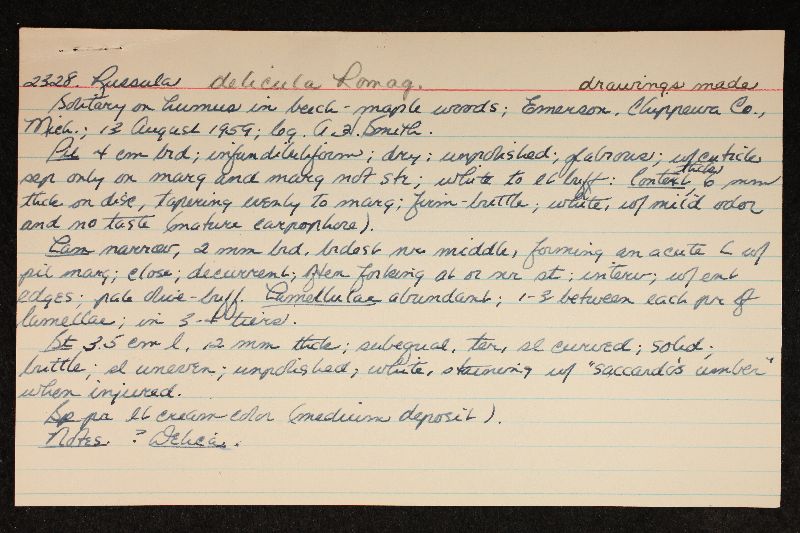 2328. Russula delicula Romag. drawings made
Solitary on humus in beech-maple woods; Emerson, Chippewa Co.,
Mich.; 13 August 1959; leg. A.H. Smith.
Pil 4 cm brd; infundibuliform; dry; unpolished; glabrous; w/ cuticle
sep only on marg and marg not str; white to lt buff. Context 6 mm
thick on disc, tapering evenly to marg; firm-brittle; white, w/ mild odor
and no taste (mature carpophore).
Lam narrow, 2 mm brd, brdest nr middle, forming an acute L w/
pil marg; close; decurrent; often forking at or nr st; interv; w/ ent
edges; pale olive-buff. Lamellulae abundant; 1-3 between each pr of
lamellae; in 3-4 tiers.
St 3.5 cm l, 12 mm thick; subequal, ter, sl curved; solid;
brittle; sl uneven; unpolished; white, staining w/ "saccardo's umber"
when injured.
Sp pr lt cream color (medium deposit).
Notes ? Delica.